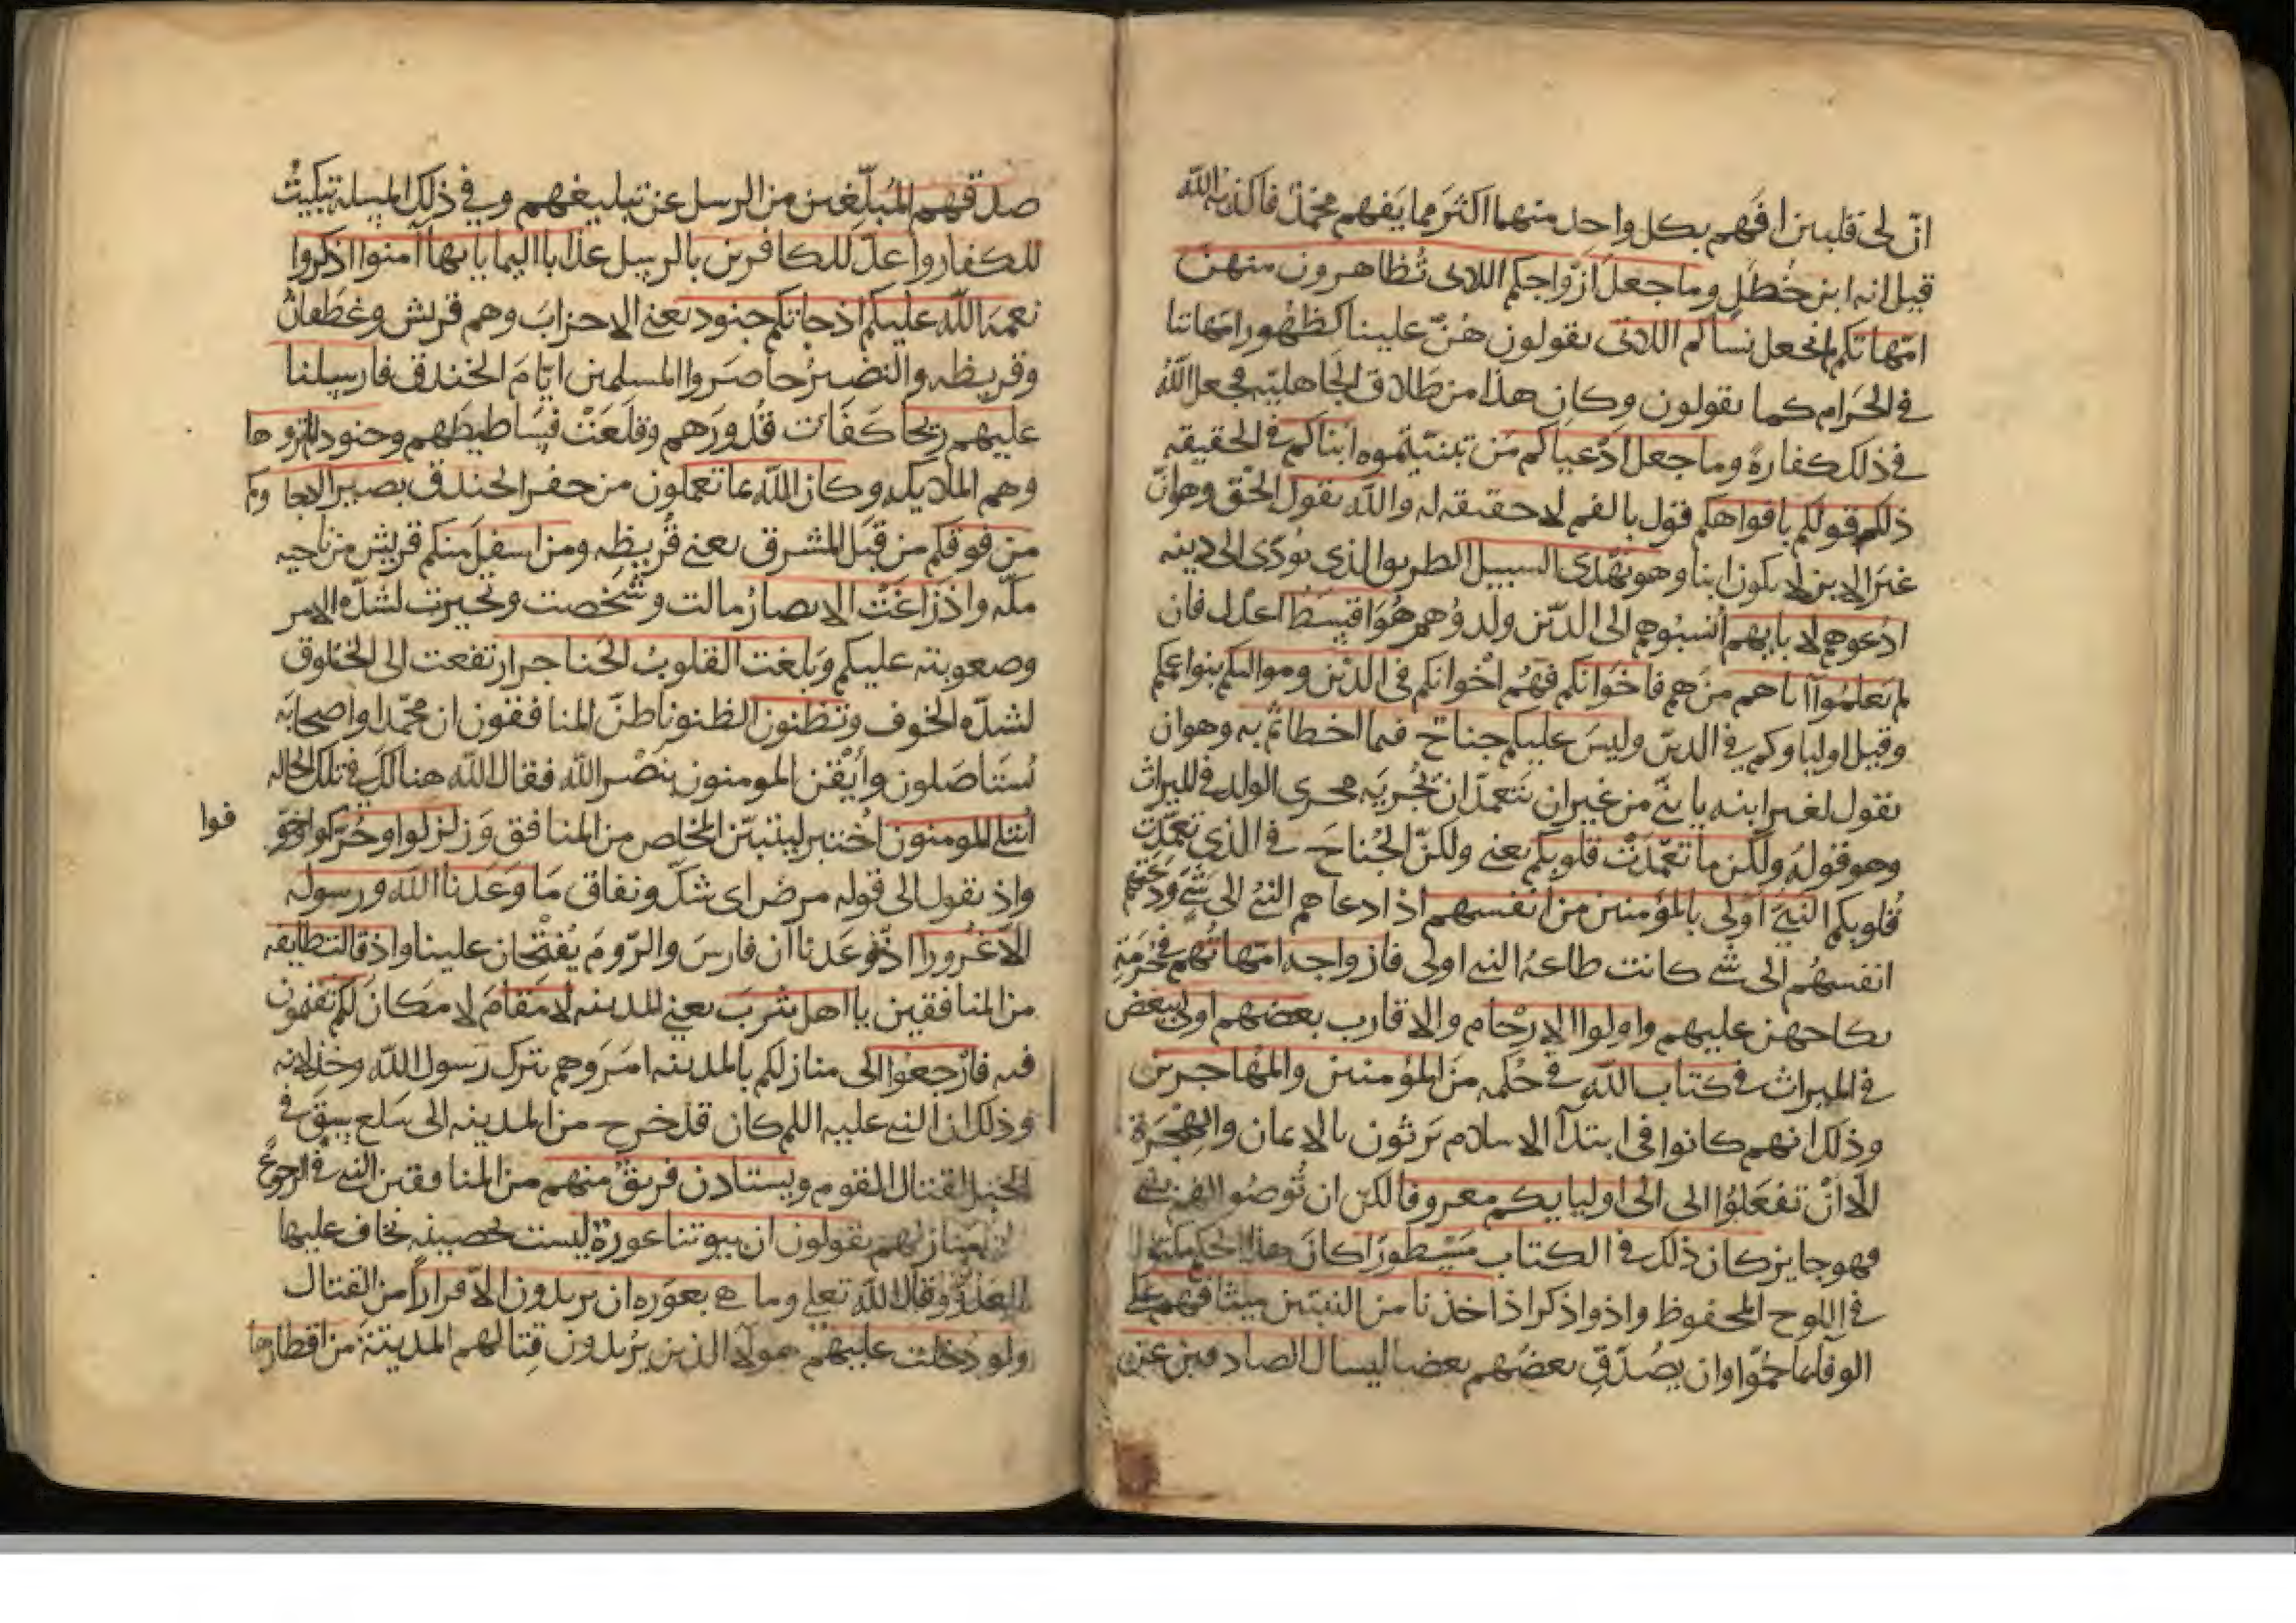 انّ لى قلبين افهم بكل واحد منهما اكثر مما يفهم محمد فاكذبه الله
قيل انه ابن خطل وما جعل ازواجكم اللائى تظاهرون منهن
امهاتكم لم يجعل نساكم اللائى يقولون هن علينا كظهور امهاتنا
فى الحرام كما يقولون وكان هذا من طلاق الجاهلية فجعل الله
فى ذلك كفارة وما جعل ادعياكم من تبنيتموه ابناكم فى الحقيقه
ذلكم قولكم بافواهكم قول بالفم لا حقيقه له والله يقول الحق وهو انّ
غير الابن لا يكون ابنا وهو يهدى السبيل الطريق الذى يودى الى دينه
ادعوهم لابايهم انسبوهم الى الذين ولدوهم هو اقسط اعدل فان
لم تعلموا اباهم من هم فاخوانكم فهم اخوانكم فى الدين ومواليكم بنوا عمكم
وقيل اولياوكم فى الدين وليس عليكم جناح فيما اخطاتم به وهو ان
يقول لغير ابنه يا بنى من غير ان يتعمد ان يجريه مجرى الولد فى الميراث
وهو قوله ولكن ما تعمدت قلوبكم يعنى ولكن الجناح فى الذى تعمدت
قلوبكم النبى اولى بالمؤمنين من انفسهم اذا دعاهم النبى الى شئ ودعتهم
انفسهم الى شى كانت طاعة النبى اولى فازواجه امهاتهم فى حرمة
نكاحهن عليهم واولوا الارحام والاقارب بعضهم اولى ببعض
فى الميراث فى كتاب الله فى حكمه من المؤمنين والمهاجرين
وذلك انهم كانوا فى ابتدآ الاسلام يرثون بالايمان والهجرة
الا ان تفعلوا الى الى اوليايكم معروفا لكن ان توصوا لهم بشى
فهو جايز كان ذلك فى الكتاب مسطورا كان هذا الحكم مكتوبا
فى اللوح المحفوظ واذ واذكر اذ اخذنا من النبين ميثاقهم على
الوفا بما حملوا وان يصدق بعضهم بعضا ليسال الصادقين عن
صدقهم المبلّغين من الرسل عن تبليغهم وفى ذلك المسله تبكيت
للكفار واعد للكافرين بالرسل عذابا اليما يايها آمنوا اذكروا
نعمة الله عليكم اذ جاتكم جنود يعنى الاحزاب وهم قريش وغطفان
وقريظه والنضير حاصروا المسلمين ايام الخندق فارسلنا
عليهم ريحا كفات قدورهم وقلعت فساطيطهم وجنودا لم تروها
وهم الملايكه وكان الله بما تعملون من حفر الخندق بصيرا اذ جاوكم
من فوقكم من قبل المشرق يعنى قريظه ومن اسفل منكم قريش من ناحيه
مكه واذ زاغت الابصار مالت وشخصت وتحيرت لشدة الامر
وصعوبته عليكم وبلغت القلوب الحناجر ارتفعت الى الحلوق
لشدة الخوف وتظنون الظنونا ظن المنافقون ان محمدا واصحابه
يستاصلون وايقن المومنون بنصر الله فقال الله هنالك فى تلك الحاله
ابتلى المومنون اختبر ليتبين المخلص من المنافق وزلزلوا وحركوا وخو
فوا
واذ يقول الى قوله مرض اى شك ونفاق ما وعدنا الله ورسوله
الا غرورا اذ وعدنا ان فارس والروم يفتحان علينا واذ قالت طايفه
من المنافقين يا اهل يثرب يعنى المدينه لا مقام لا مكان لكم تقيمون
فيه فارجعوا الى منازلكم بالمدينه امروهم بترك رسول الله وخذلانه
وذلك ان النبى عليه السلم كان قد خرج من المدينه الى سلع
لقتال القوم ويستاذن فريق منهم من المنافقين النبى فى الرجوع
منازلهم يقولون ان بيوتنا عورة ليست بحصينه نخاف عليها
العدو وقال الله تعلى وما هى بعورة ان يريدون الا فرارا من القتال
ولو دخلت عليهم هولا الذين يريدون قتالهم المدينة من اقطارها